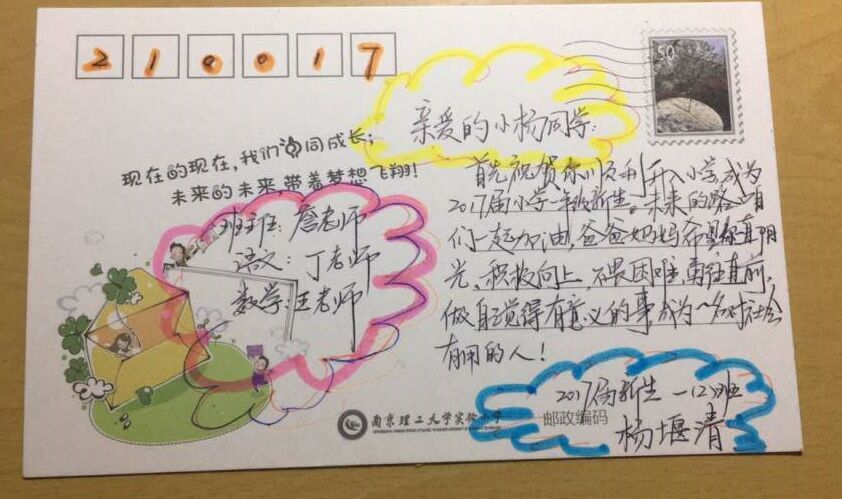 210017
50
亲爱的小杨同学:
现在的现在,我们一同成长;
未来的未来,带着梦想飞翔!
首先祝贺你顺利升入小学,成为
2017届小学一年级新生。未来的路咱
们一起加油,爸爸妈妈希望你直阳
光、积极向上、不畏困难、勇往直前,
做自觉得有意义的事,成为一名对社会
有用的人!
班主任:詹老师
语文:丁老师
数学:王老师
2017届新生 一(2)班
杨堰清
南京理工大学实验小学
邮政编码